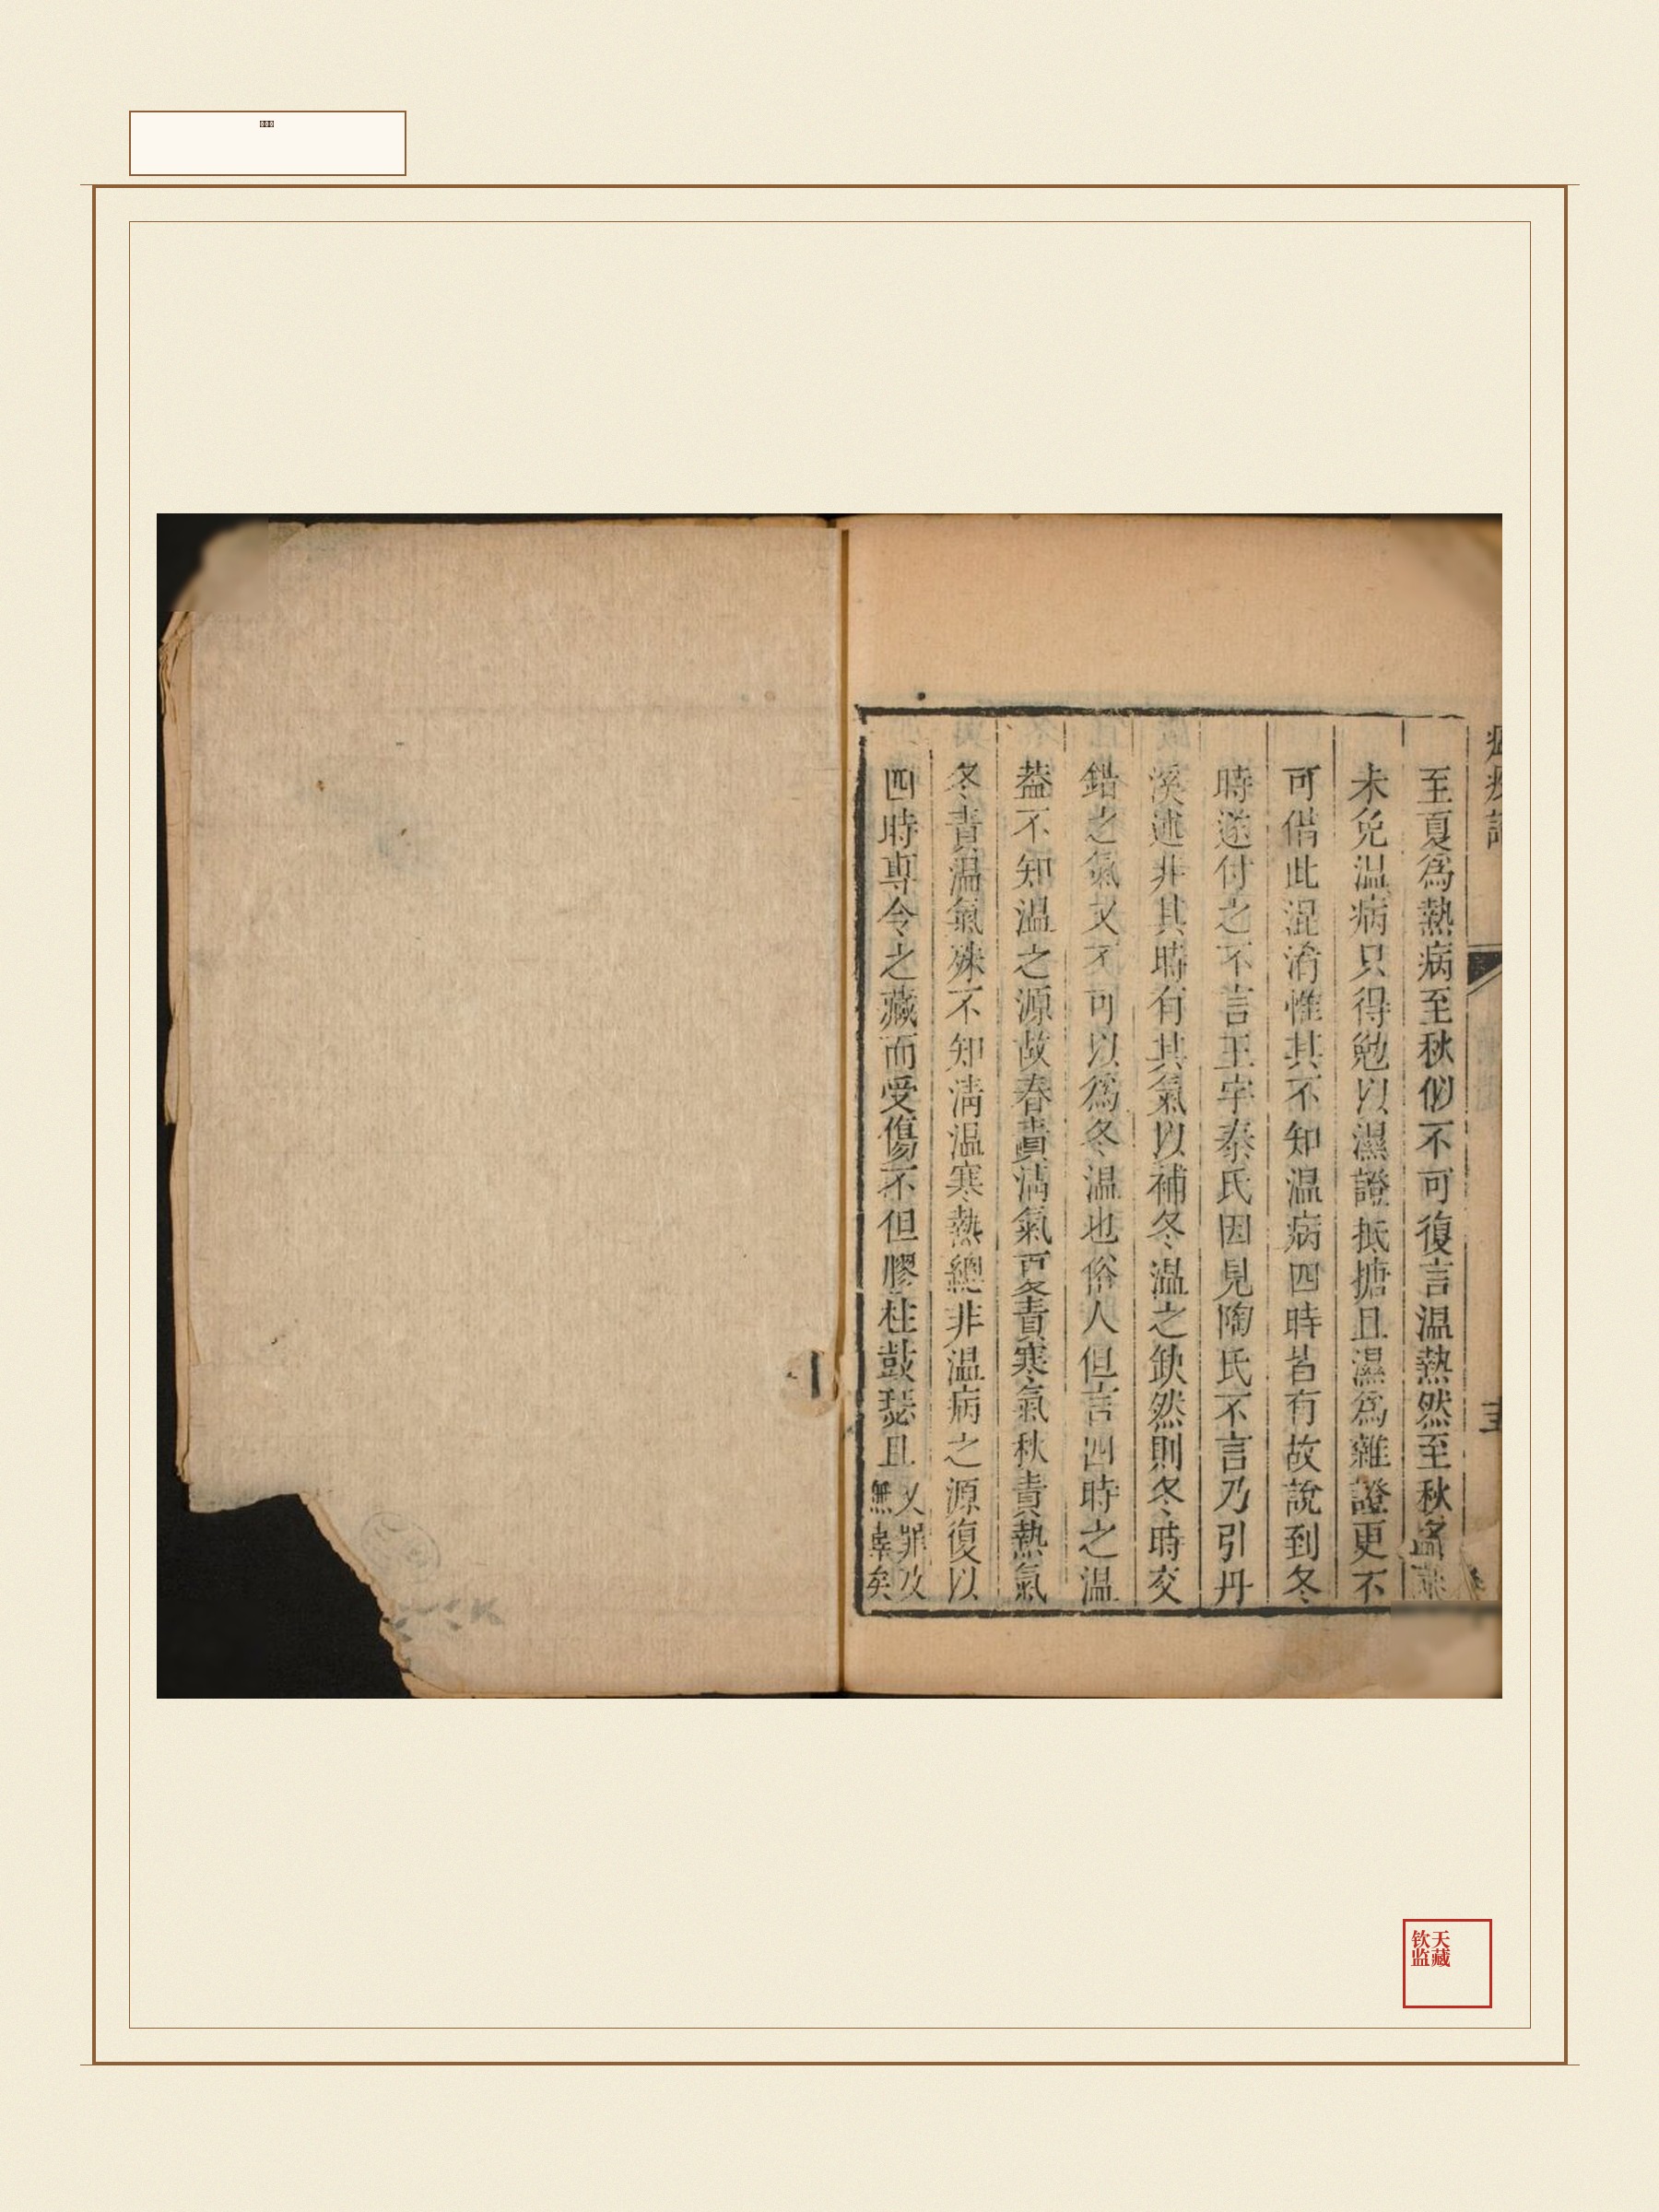 至夏爲熱病至秋似不可復言温熱然至秋
未免温病只得勉以濕證抵搪且濕爲雜證更不
可借此混淆惟其不知温病四時皆有故說到冬
時遂付之不言王宇泰氏因見陶氏不言乃引丹
溪述非其時有其氣以補冬温之缺然則冬時交
錯之氣又不可以爲冬温也俗人但言四時之温
葢不知温之源故春責清氣夏責寒氣秋責熱氣
冬責温氣殊不知清温寒熱總非温病之源復以
四時專令之藏而受傷不但膠柱鼓瑟且又罪及無辜矣
钦天
监藏